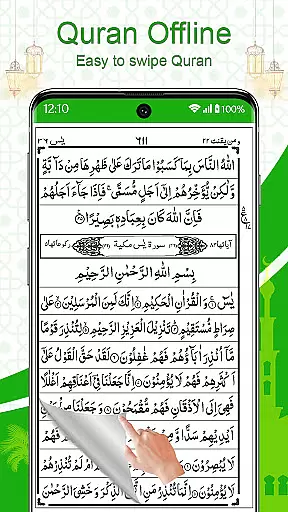 Quran Offline
Easy to swipe Quran
12:10
100%
ومن یقنت ۲۲
۶۱۱
یٰسٓ ۳۶
اللّٰهُ النَّاسَ بِمَا كَسَبُوْا مَا تَرَكَ عَلٰى ظَهْرِهَا مِنْ دَآبَّةٍ
وَّلٰكِنْ يُّؤَخِّرُهُمْ اِلٰٓى اَجَلٍ مُّسَمًّى ۚ فَاِذَا جَآءَ اَجَلُهُمْ
فَاِنَّ اللّٰهَ كَانَ بِعِبَادِهٖ بَصِيْرًا
اٰیاتها ۸۳
سورة يٰسٓ مكية
رکوعاتها ۵
بِسْمِ اللّٰهِ الرَّحْمٰنِ الرَّحِيْمِ
يٰسٓ ۚ وَالْقُرْاٰنِ الْحَكِيْمِ ۙ اِنَّكَ لَمِنَ الْمُرْسَلِيْنَ ۙ عَلٰى
صِرَاطٍ مُّسْتَقِيْمٍ ؕ تَنْزِيْلَ الْعَزِيْزِ الرَّحِيْمِ ۙ لِتُنْذِرَ قَوْمًا
مَّاۤ اُنْذِرَ اٰبَآؤُهُمْ فَهُمْ غٰفِلُوْنَ لَقَدْ حَقَّ الْقَوْلُ عَلٰٓى
اَكْثَرِهِمْ فَهُمْ لَا يُؤْمِنُوْنَ اِنَّا جَعَلْنَا فِيْۤ اَعْنَاقِهِمْ اَغْلٰلًا
فَهِيَ اِلَى الْاَذْقَانِ فَهُمْ مُّقْمَحُوْنَ وَجَعَلْنَا مِنْۢ بَيْنِ
اَيْدِيْهِمْ سَدًّا وَّمِنْ فَهُمْ
لَا يُبْصِرُوْنَ لَمْ تُنْذِرْهُمْ
لَا يُؤْمِنُوْنَ اِنَّمَا تُنْذِرُ مَنِ اتَّبَعَ الذِّكْرَ وَخَشِيَ الرَّحْمٰنَ